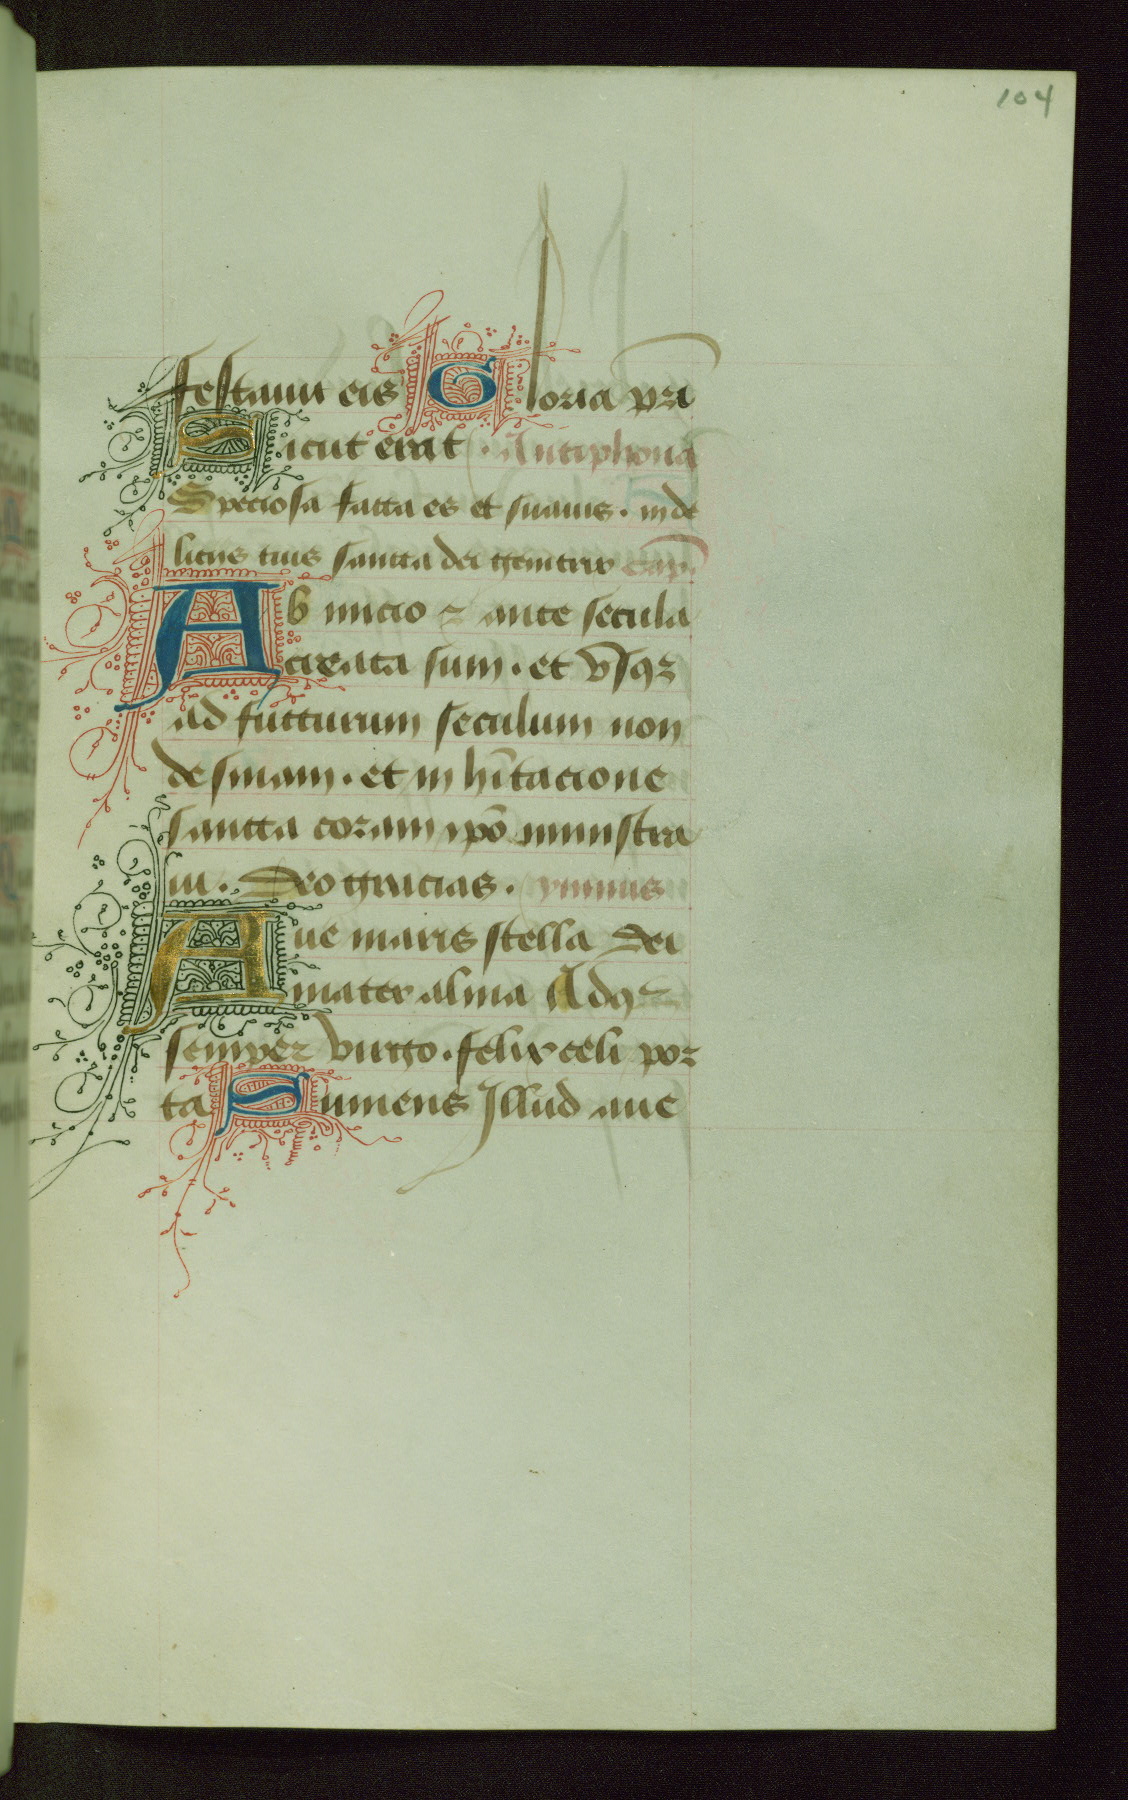 104
festauit eis Gloria pri
Sicut erat . Antiphona
Speciosa facta es et suauis . in de
licijs tuis sancta dei genitrix cap
Ab inicio ⁊ ante secula
creata sum . et vsqꝫ
ad futturum seculum non
desinam . et in hītacione
sancta coram ipō ministra
ui . Deo gracias . ymnus
Aue maris stella Dei
mater alma Adqꝫ
semper virgo . felix celi por
ta Sumens Illud aue